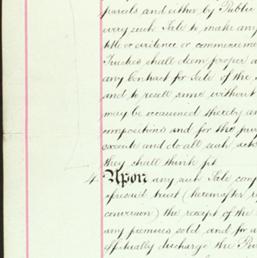 parcels and either by Public
every such Sale to make any
title or evidence or commencement
Trustees shall deem proper a
any Contract for Sale of the
and to resell same without
may be occasioned thereby a
compositions and for the pur
execute and do all such acts
they shall think fit
4 Upon any such Sale
aforesaid trust (hereinafter
conversion) the receipt of the
any premises sold and for a
effectually discharge the